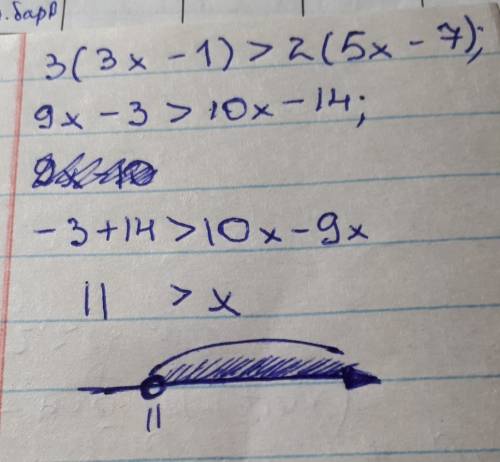 3(3x - 1) > 2(5x - 7);
9x - 3 > 10x - 14;
- 3 + 14 > 10x - 9x
11 > x
11